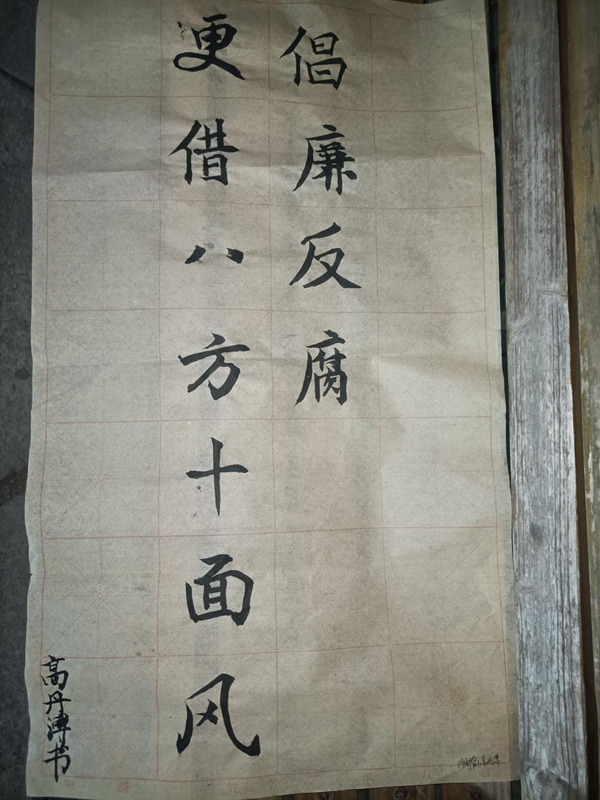 倡廉反腐
更借八方十面风
高丹涛书